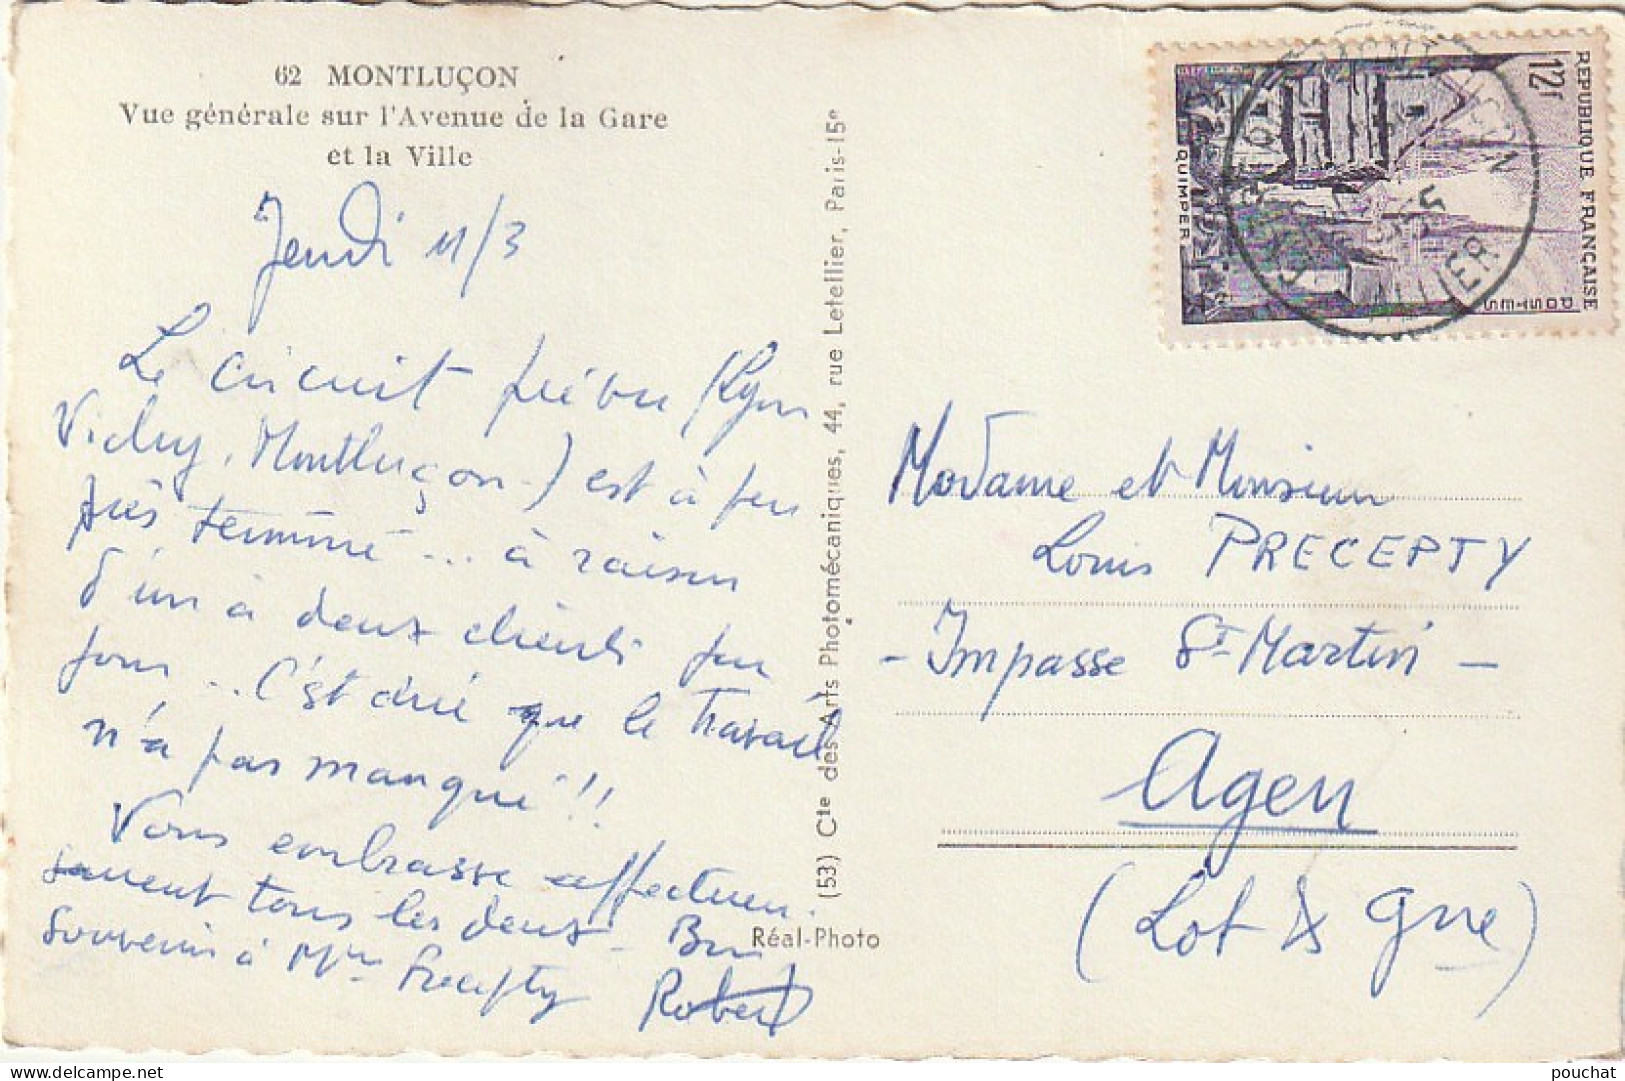 62 MONTLUÇON
Vue générale sur l'Avenue de la Gare
et la Ville
Jeudi 11/3
Le circuit prévu (Lyon
Vichy, Montluçon) est à peu
près terminé... à raison
d'un à deux clients par
jour... C'est dire que le travail
n'a pas manqué !!
Vous embrasse affectueu-
sement tous les deux - Bon
Souvenir à Mme Precepty
Robert
(53) Cte des Arts Photomécaniques, 44, rue Letellier, Paris-15e
Réal-Photo
REPUBLIQUE FRANÇAISE
12F
POSTES
QUIMPER
ALLIER
Madame et Monsieur
Louis PRECEPTY
- Impasse St-Martin -
Agen
(Lot & Gne)
pouchat